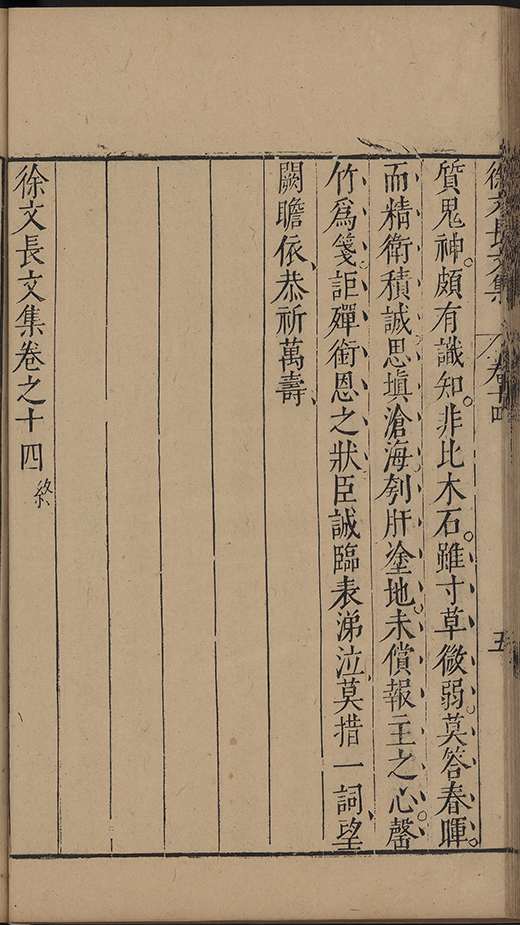 徐文長文集 卷十四 五
質鬼神。頗有識知。非比木石。雖寸草微弱。莫答春暉。
而精衛積誠思塡滄海。刳肝塗地。未償報主之心。罄
竹爲箋。詎殫銜恩之狀臣誠臨表涕泣、莫措一詞、望
闕瞻依、恭祈萬壽、
徐文長文集卷之十四 終